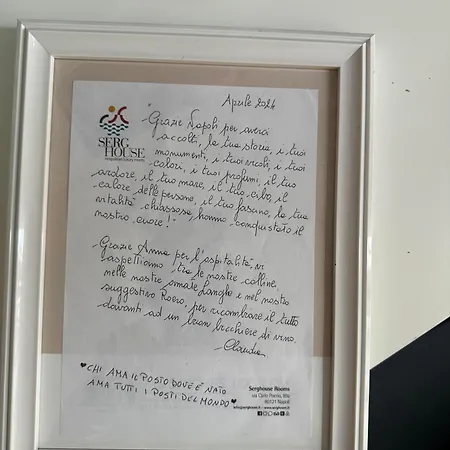 SERG
HOUSE
Aprile 2024
"Grazie Napoli per averci
accolti, la tua storia, i tuoi
monumenti, i tuoi vicoli, i tuoi
colori, i tuoi profumi, il tuo
ardore, il tuo mare, il tuo cibo, il
calore delle persone, il tuo fascino, la tua
vitalità chiassosa, hanno conquistato il
nostro cuore!"
Grazie Anna per l'ospitalità, vi
aspettiamo tra le nostre colline,
nelle nostre amate Langhe e nel nostro
suggestivo Roero, per ricambiare il tutto
davanti ad un buon bicchiere di vino.
Claudia
♥CHI AMA IL POSTO DOVE E' NATO
AMA TUTTI I POSTI DEL MONDO♥
Serghouse Rooms
80121 Napoli